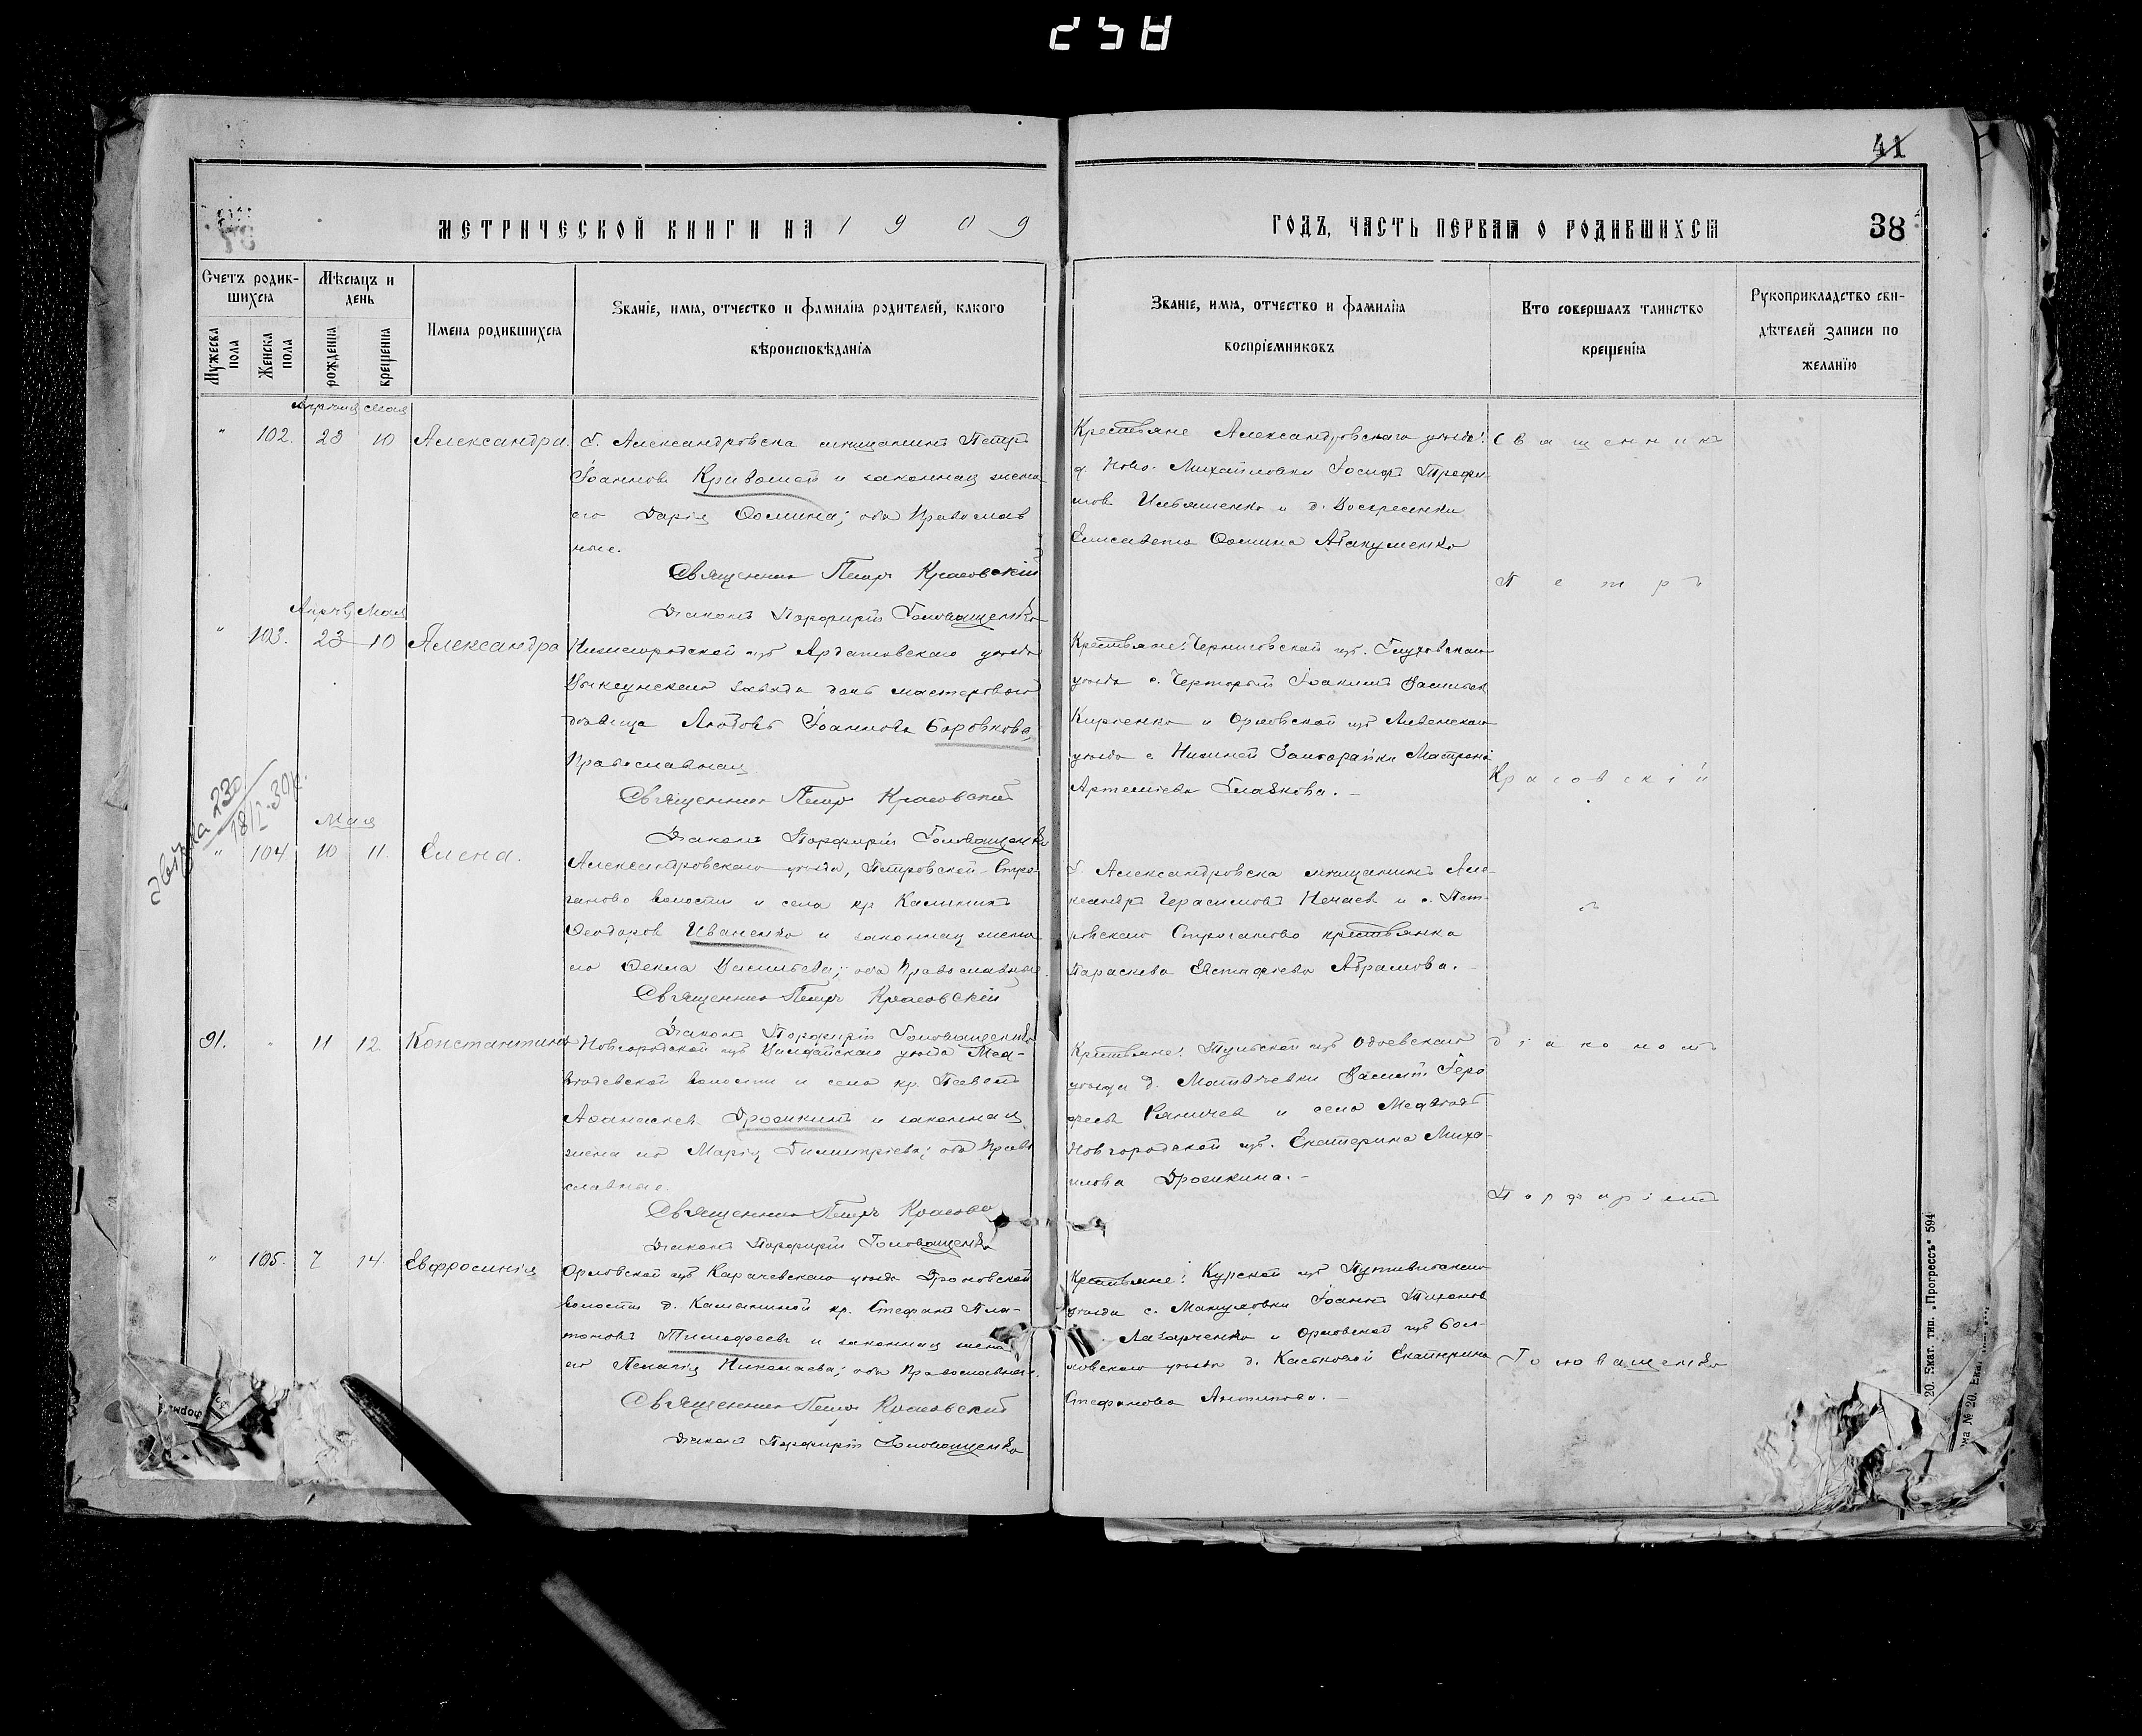 258
41
МЕТРИЧЕСКОЙ КНИГИ НА 1909
ГОДЪ, ЧАСТЬ ПЕРВАЯ О РОДИВШИХСЯ
38
Счетъ родив-
шихся
Мужеска пола
Женска пола
Мѣсяцъ и
день
рожденія
крещенія
Имена родившихся
Званіе, имя, отчество и фамилія родителей, какого
вѣроисповѣданія
Званіе, имя, отчество и фамилія
воспріемниковъ
Кто совершалъ таинство
крещенія
Рукоприкладство сви-
дѣтелей записи по
желанію
Апрѣля Мая
" 102. 23 10 Александра.
Г. Александровска мѣщанинъ Петръ
Іоанновъ Кривошей и законная жена
его Дарія Ѳомина; оба Православ
ные.
Священникъ Петръ Красовскій
Діаконъ Порфирій Головащенко
Крестьяне Александровскаго уѣзда:
д. Ново-Михайловки Іосифъ Трофи-
мовъ Ильяшенко и д. Воскресенки
Елисавета Ѳомина Абакуменко
Священникъ
Петръ
Апрѣля Мая
" 103. 23 10 Александра
Нижегородской губ Ардатовскаго уѣзда
Выксунскаго завода дочь мастерового
дѣвица Любовь Іоаннова Боровкова,
Православная
Священникъ Петръ Красовскій
Діаконъ Порфирій Головащенко
Крестьяне: Черниговской губ. Глуховскаго
уѣзда с. Чернорый Іоакимъ Васильев
Кириенко и Орловской губ Ливенскаго
уѣзда с Нижней Матрона
Артемьева Глазкова.-
Красовскій
230
18/I-30
Мая
" 104. 10 11. Елена.
Александровскаго уѣзда, Петровской-Стро-
ганово волости и села кр Калинникъ
Ѳеодоровъ Иваненко и законная жена
его Ѳекла Васильева; оба Православные.
Священникъ Петръ Красовскій
Діаконъ Порфирій Головащенко
Г. Александровска мѣщанинъ Але-
ксандръ Герасимовъ Нечаев и с. Пет-
ровскаго Строганово крестьянка
Параскева Евстафіева Абрамова.
съ
91. " 11 12 Константинъ
Новгородской губ Валдайскаго уѣзда Мед-
вѣдевской волости и села кр. Павелъ
Аѳанасьев Дрожинъ и законная
жена его Марія Димитріева; оба Право
славные.
Священникъ Петръ Красовс
Діаконъ Порфирій Головащенко
Крестьяне: Тульской губ Одоевскаго
уѣзда д. Матвѣевки
и села Медвѣдь
Новгородской губ. Екатерина Миха-
илова
діакономъ
Порфиріемъ
" 105. 7 14. Евфросинія
Орловской губ Карачевскаго уѣзда Дроновской
волости д. Калинкиной кр. Стефанъ Пла-
тоновъ Тимофеевъ и законная жена
его Пелагія Николаева; оба Православные.
Священникъ Петръ Красовскій
Діаконъ Порфирій Головащенко
Крестьяне: Курской губ Путивльскаго
уѣзда с. Іоаннъ Тихонов
Лазарченко и Орловской губ Бол-
ховскаго уѣзда д. Екатерина
Стефанова Антипова.-
Головащенко
20. Екат. тип. „Прогрессъ“ 594